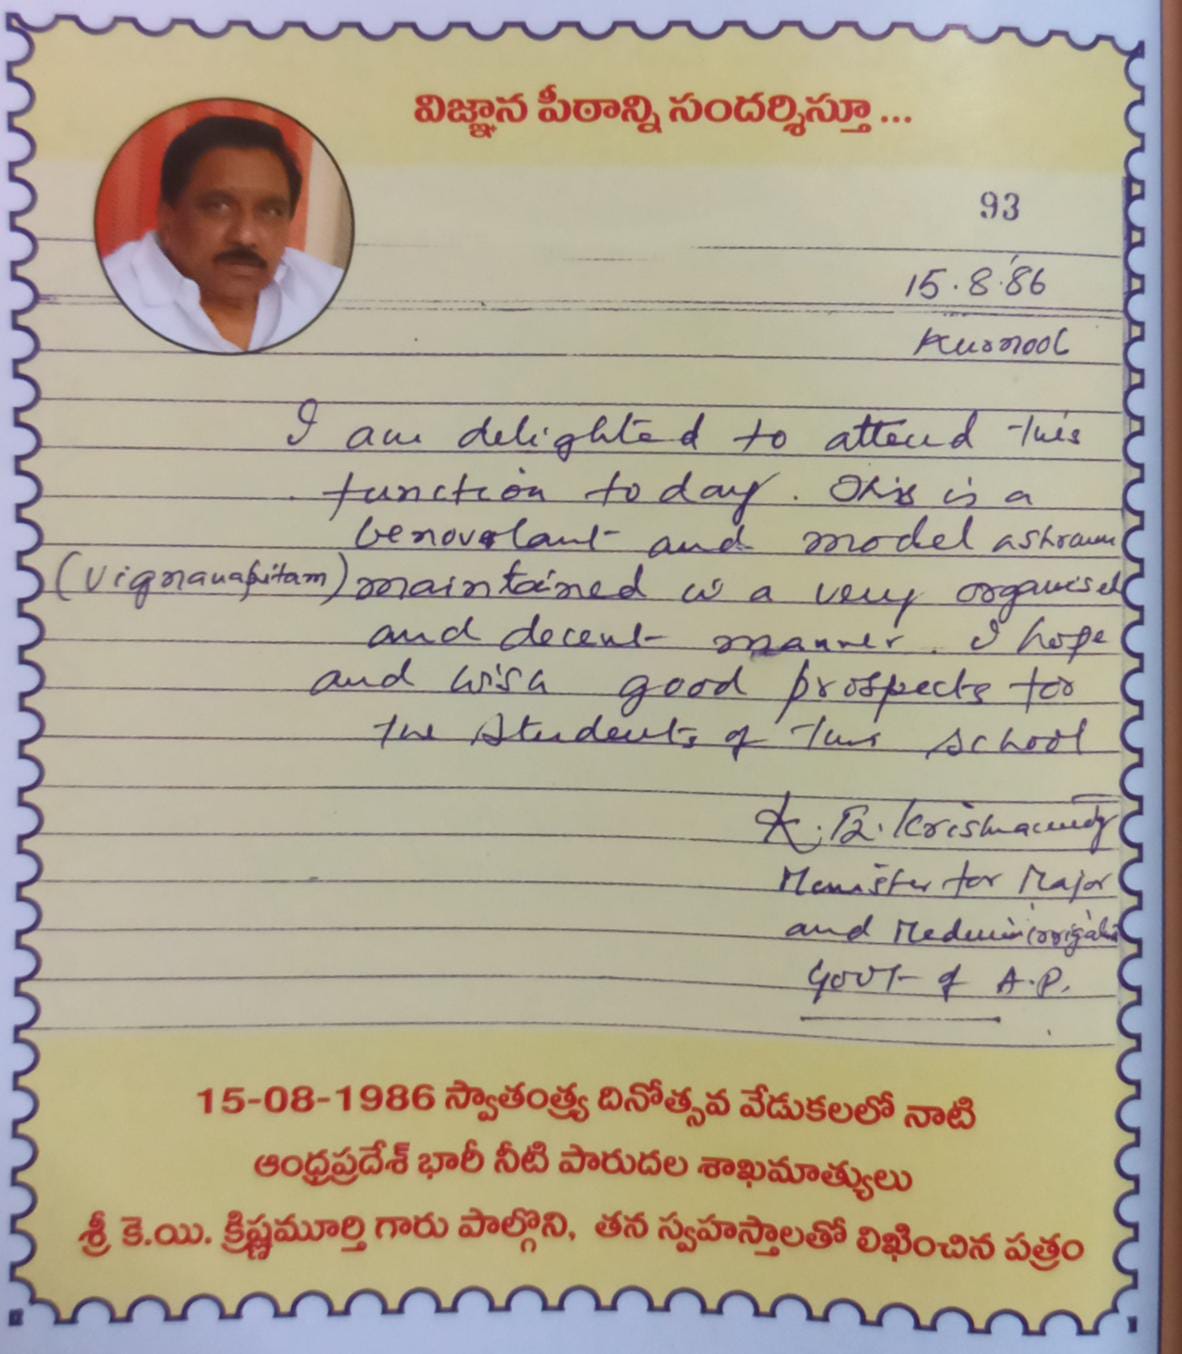 విజ్ఞాన పీఠాన్ని సందర్శిస్తూ ...
93
15.8.86
Kurnool
I am delighted to attend this
function today. This is a
benovolant and model ashram
(Vignanapitam) maintained in a very organised
and decent manner. I hope
and wish good prospects for
the students of this school
K.E. Krishnamurthy
Minister for Major
and Medium irrigation
Govt of A.P.
15-08-1986 స్వాతంత్ర్య దినోత్సవ వేడుకలలో నాటి
ఆంధ్రప్రదేశ్ భారీ నీటి పారుదల శాఖమాత్యులు
శ్రీ కె.యి. క్రిష్ణమూర్తి గారు పాల్గొని, తన స్వహస్తాలతో లిఖించిన పత్రం